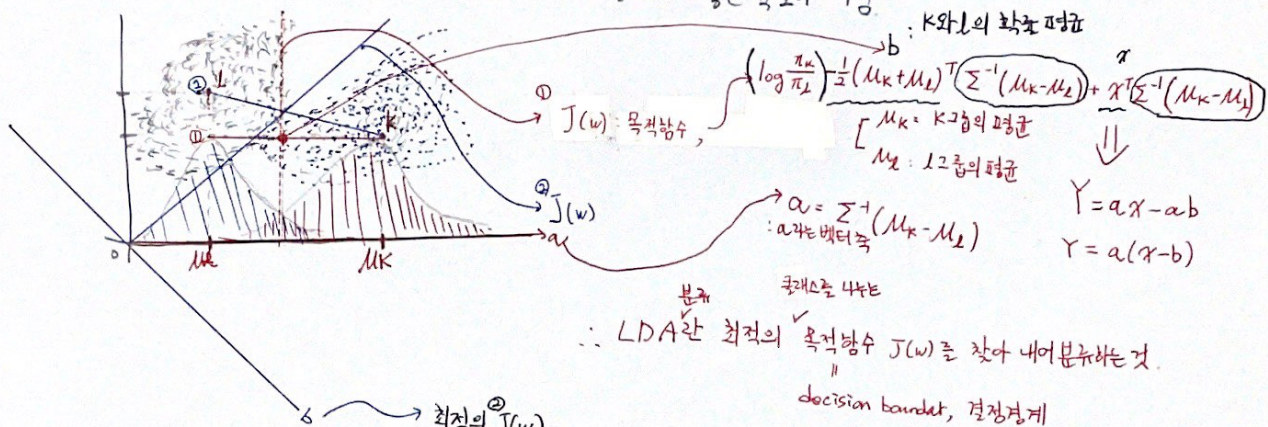 b : K와 l의 확률 평균
(log πK/πl) - 1/2 (μK+μl)ᵀ Σ⁻¹(μK-μl) + xᵀ Σ⁻¹(μK-μl)
x
② L
① K
① J(w) : 목적함수,
[ μK = K그룹의 평균
μl : l그룹의 평균
② J(w)
a
0 μl μK
a = Σ⁻¹(μK-μl)
: a라는 벡터 축
Y = ax-ab
Y = a(x-b)
분류 클래스를 나누는
∴ LDA란 최적의 목적함수 J(w)를 찾아 내어 분류하는 것.
=
decision boundat, 결정경계
b 최적의 ② J(w)